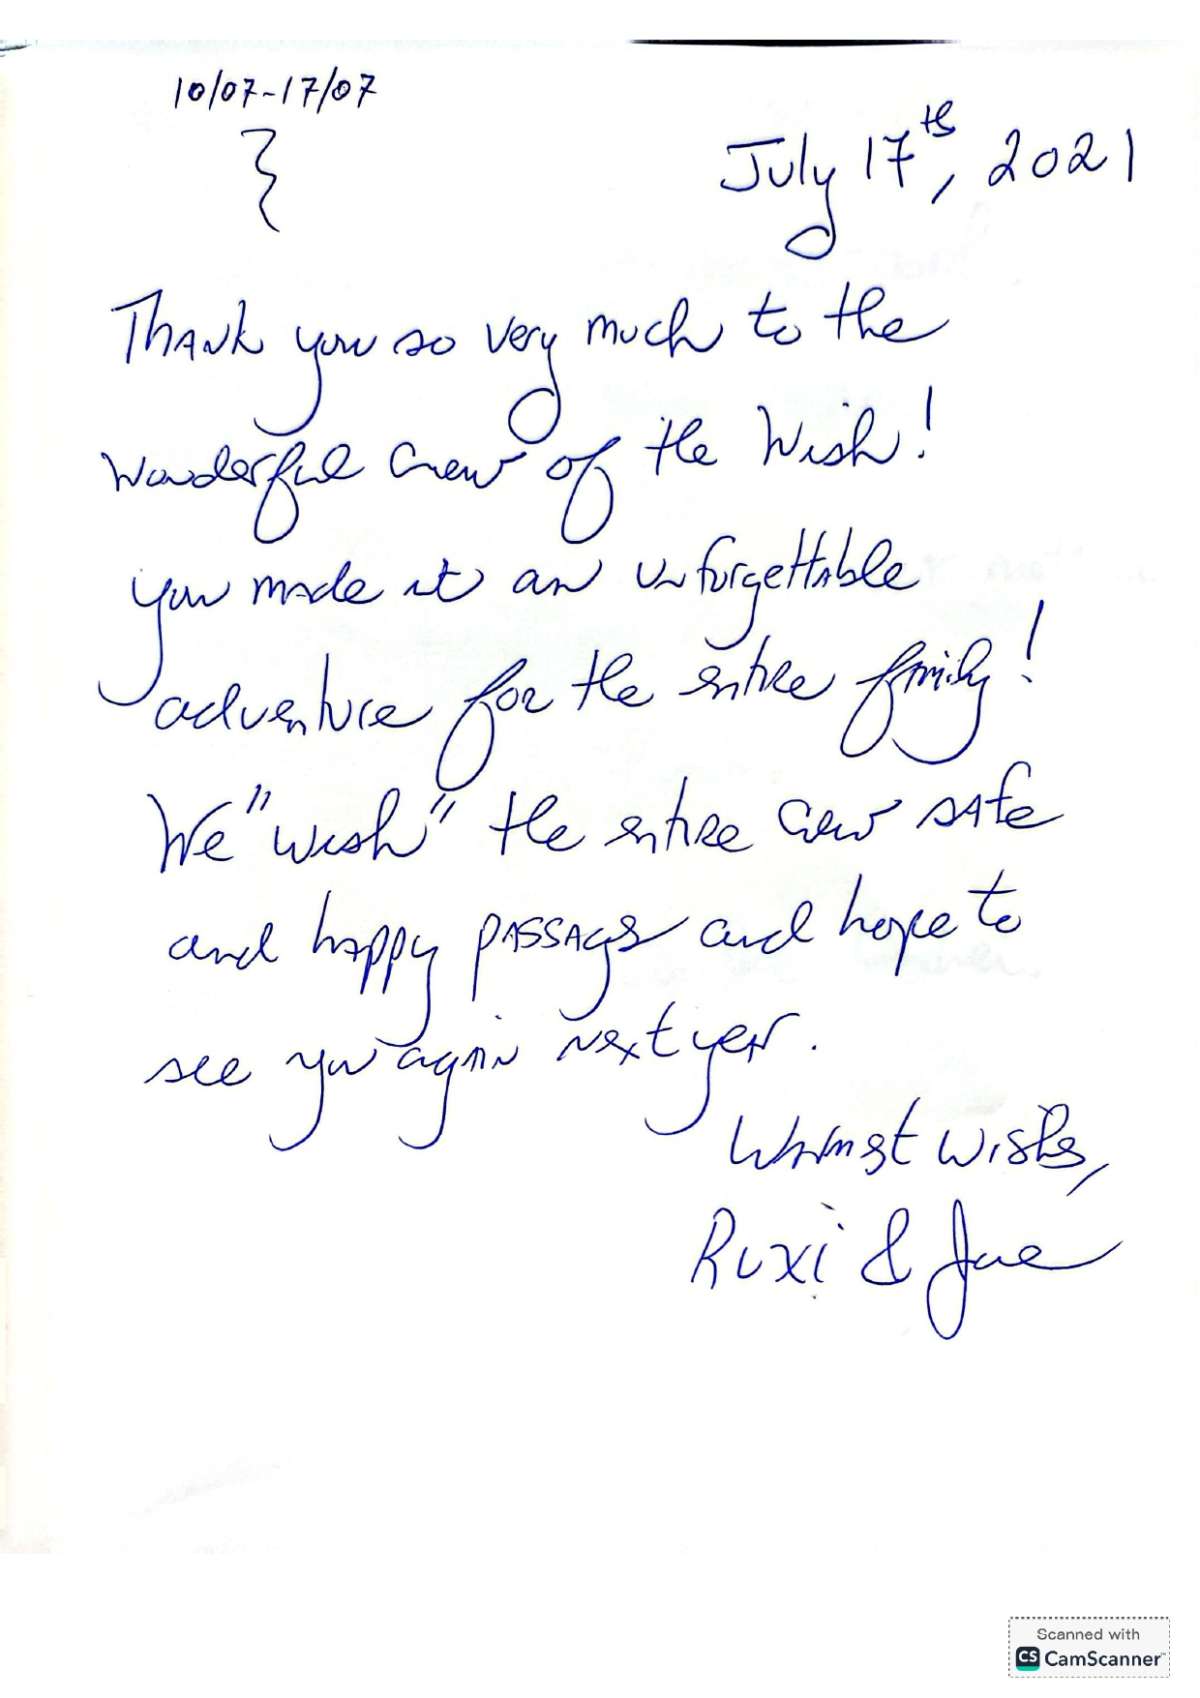 10/07-17/07
July 17th, 2021
Thank you so very much to the
wonderful crew of the Wish!
you made it an unforgettable
adventure for the entire family!
We "wish" the entire crew safe
and happy passages and hope to
see you again next year.
Warmest wishes,
Ruxi &
Scanned with
CS CamScanner